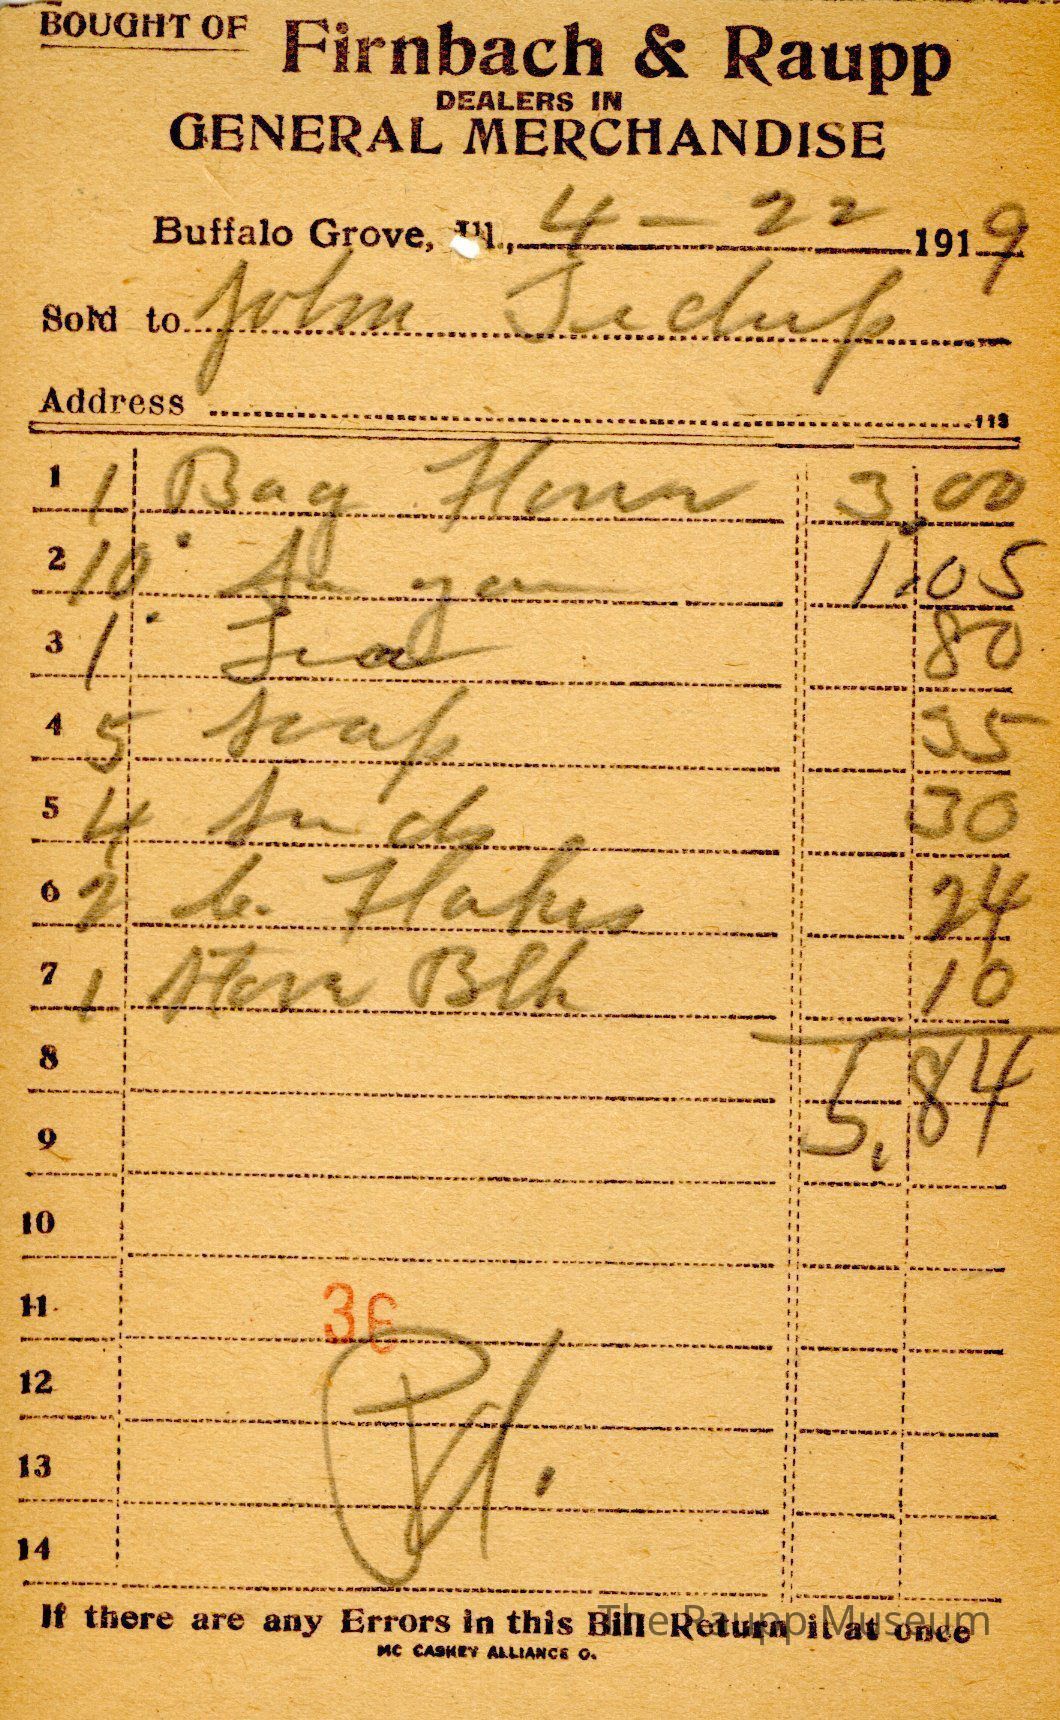 BOUGHT OF Firnbach & Raupp
DEALERS IN
GENERAL MERCHANDISE
Buffalo Grove, Ill., 4-22 1919
Sold to John
Address
113
1 1 Bag Flour 3.00
2 10 Sugar 1.05
3 1 Tea 80
4 5 Soap 35
5 4 Suds 30
6 2 C. Flakes 24
7 1 Stove Blk 10
8 5.84
9
10
11
36
12
Pd.
13
14
If there are any Errors in this Bill Return it at once
MC CASKEY ALLIANCE O.
The Raupp Museum